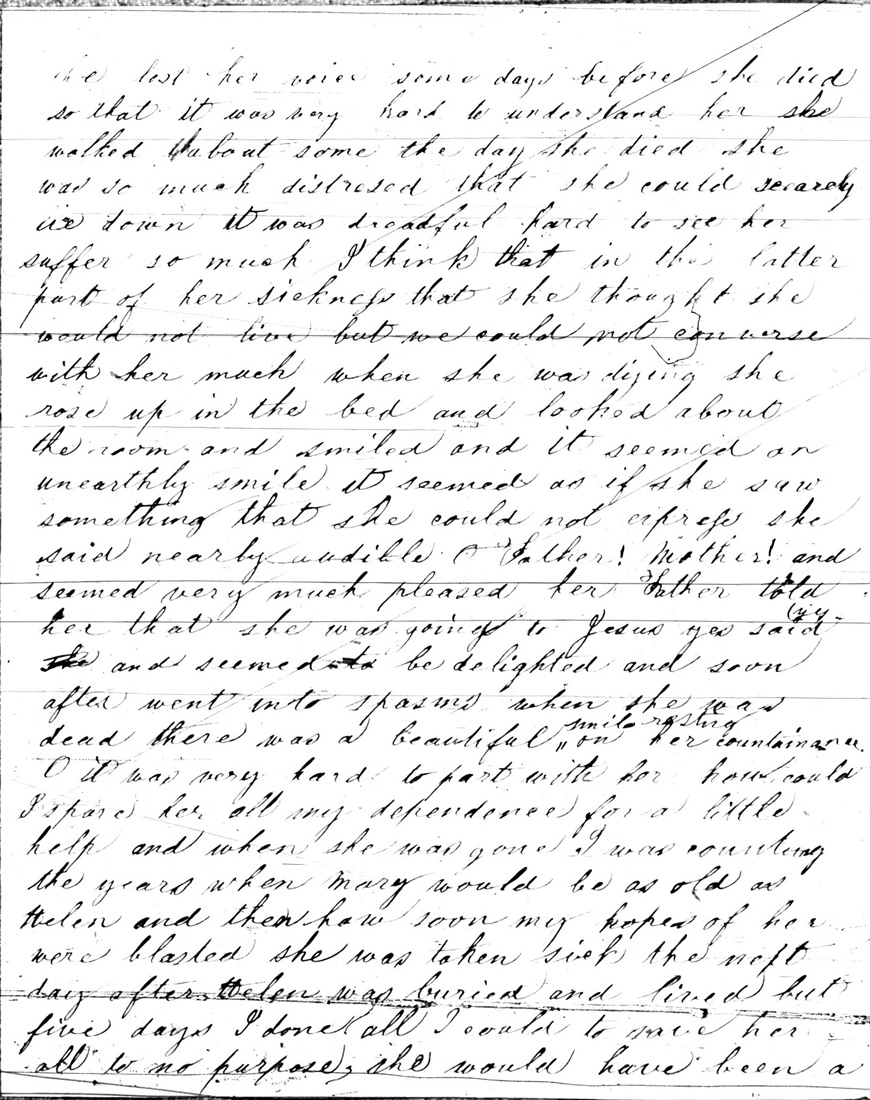 she lost her voice some days before she died
so that it was very hard to understand her she
walked about some the day she died she
was so much distresed that she could scearcly
lie down it was dreadful hard to see her
suffer so much I think that in the latter
part of her sickness that she thought she
would not live but we could not converse
with her much when she was dying she
rose up in the bed and looked about
the room and smiled and it seemed an
unearthly smile it seemed as if she saw
something that she could not express she
said nearly audible O Father! Mother! and
seemed very much pleased her Father told
her that she was going to Jesus yes said
she and seemed to be delighted and soon
after went into spasms when she was
dead there was a beautiful smile resting on her countainance
O it was very hard to part with her how could
I spare her all my dependence for a little
help and when she was gone I was counting
the years when Mary would be as old as
Helen and then how soon my hopes of her
were blasted she was taken sick the next
day after Helen was buried and lived but
five days I done all I could to save her
all to no purpose, she would have been a